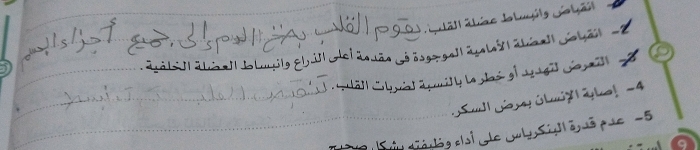 انقباض وانبساط عضلة القلب. يقوم القلب بضخ الدم إلى جميع أجزاء الجسم
2- انقباض العضلة الأمامية الموجودة فى مقدمة أعلى الذراع وانبساط العضلة الخلفية.
3- التعرض لتهديد أو خطر ما بالنسبة لضربات القلب. تنقبض
4- إصابة الإنسان بمرض السكر.
5- عدم قدرة البنكرياس على أداء وظيفته بشكل صحيح
9